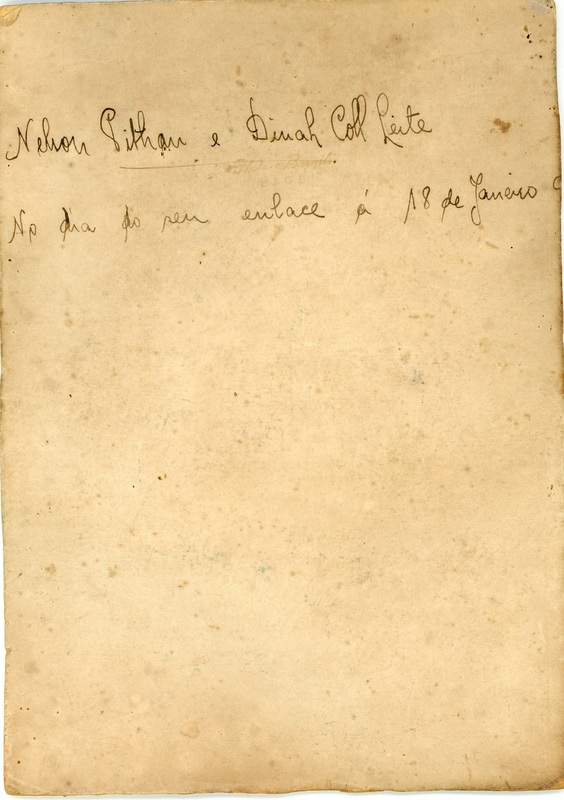 Nelson Pithan e Dinah Coll Leite
No dia do seu enlace á 18 de Janeiro